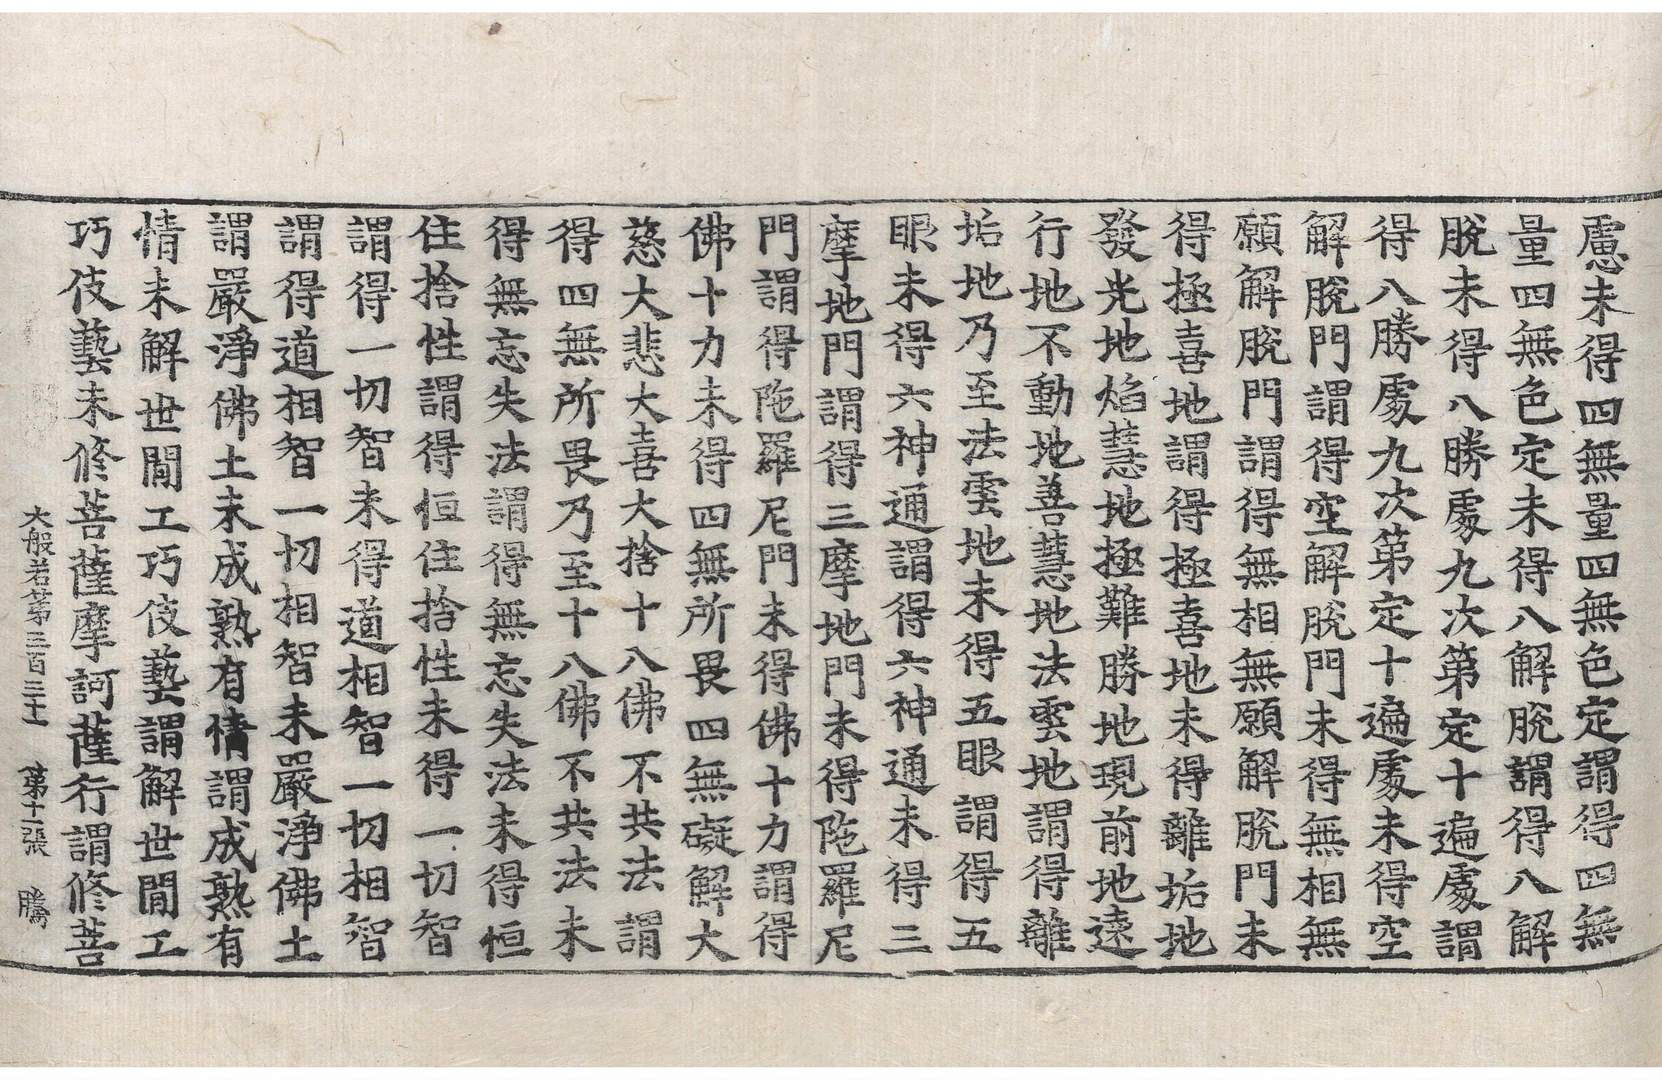 慮未得四無量四無色定謂得四無
量四無色定未得八解脫謂得八解
脫未得八勝處九次第定十遍處謂
得八勝處九次第定十遍處未得空
解脫門謂得空解脫門未得無相無
願解脫門謂得無相無願解脫門未
得極喜地謂得極喜地未得離垢地
發光地焰慧地極難勝地現前地遠
行地不動地善慧地法雲地謂得離
垢地乃至法雲地未得五眼謂得五
眼未得六神通謂得六神通未得三
摩地門謂得三摩地門未得陁羅尼
門謂得陁羅尼門未得佛十力謂得
佛十力未得四無所畏四無礙解大
慈大悲大喜大捨十八佛不共法謂
得四無所畏乃至十八佛不共法未
得無忘失法謂得無忘失法未得恒
住捨性謂得恒住捨性未得一切智
謂得一切智未得道相智一切相智
謂得道相智一切相智未嚴淨佛土
謂嚴淨佛土未成熟有情謂成熟有
情未解世間工巧伎藝謂解世間工
巧伎藝未修菩薩摩訶薩行謂修菩
大般若第三百三十一 第十一張 騰